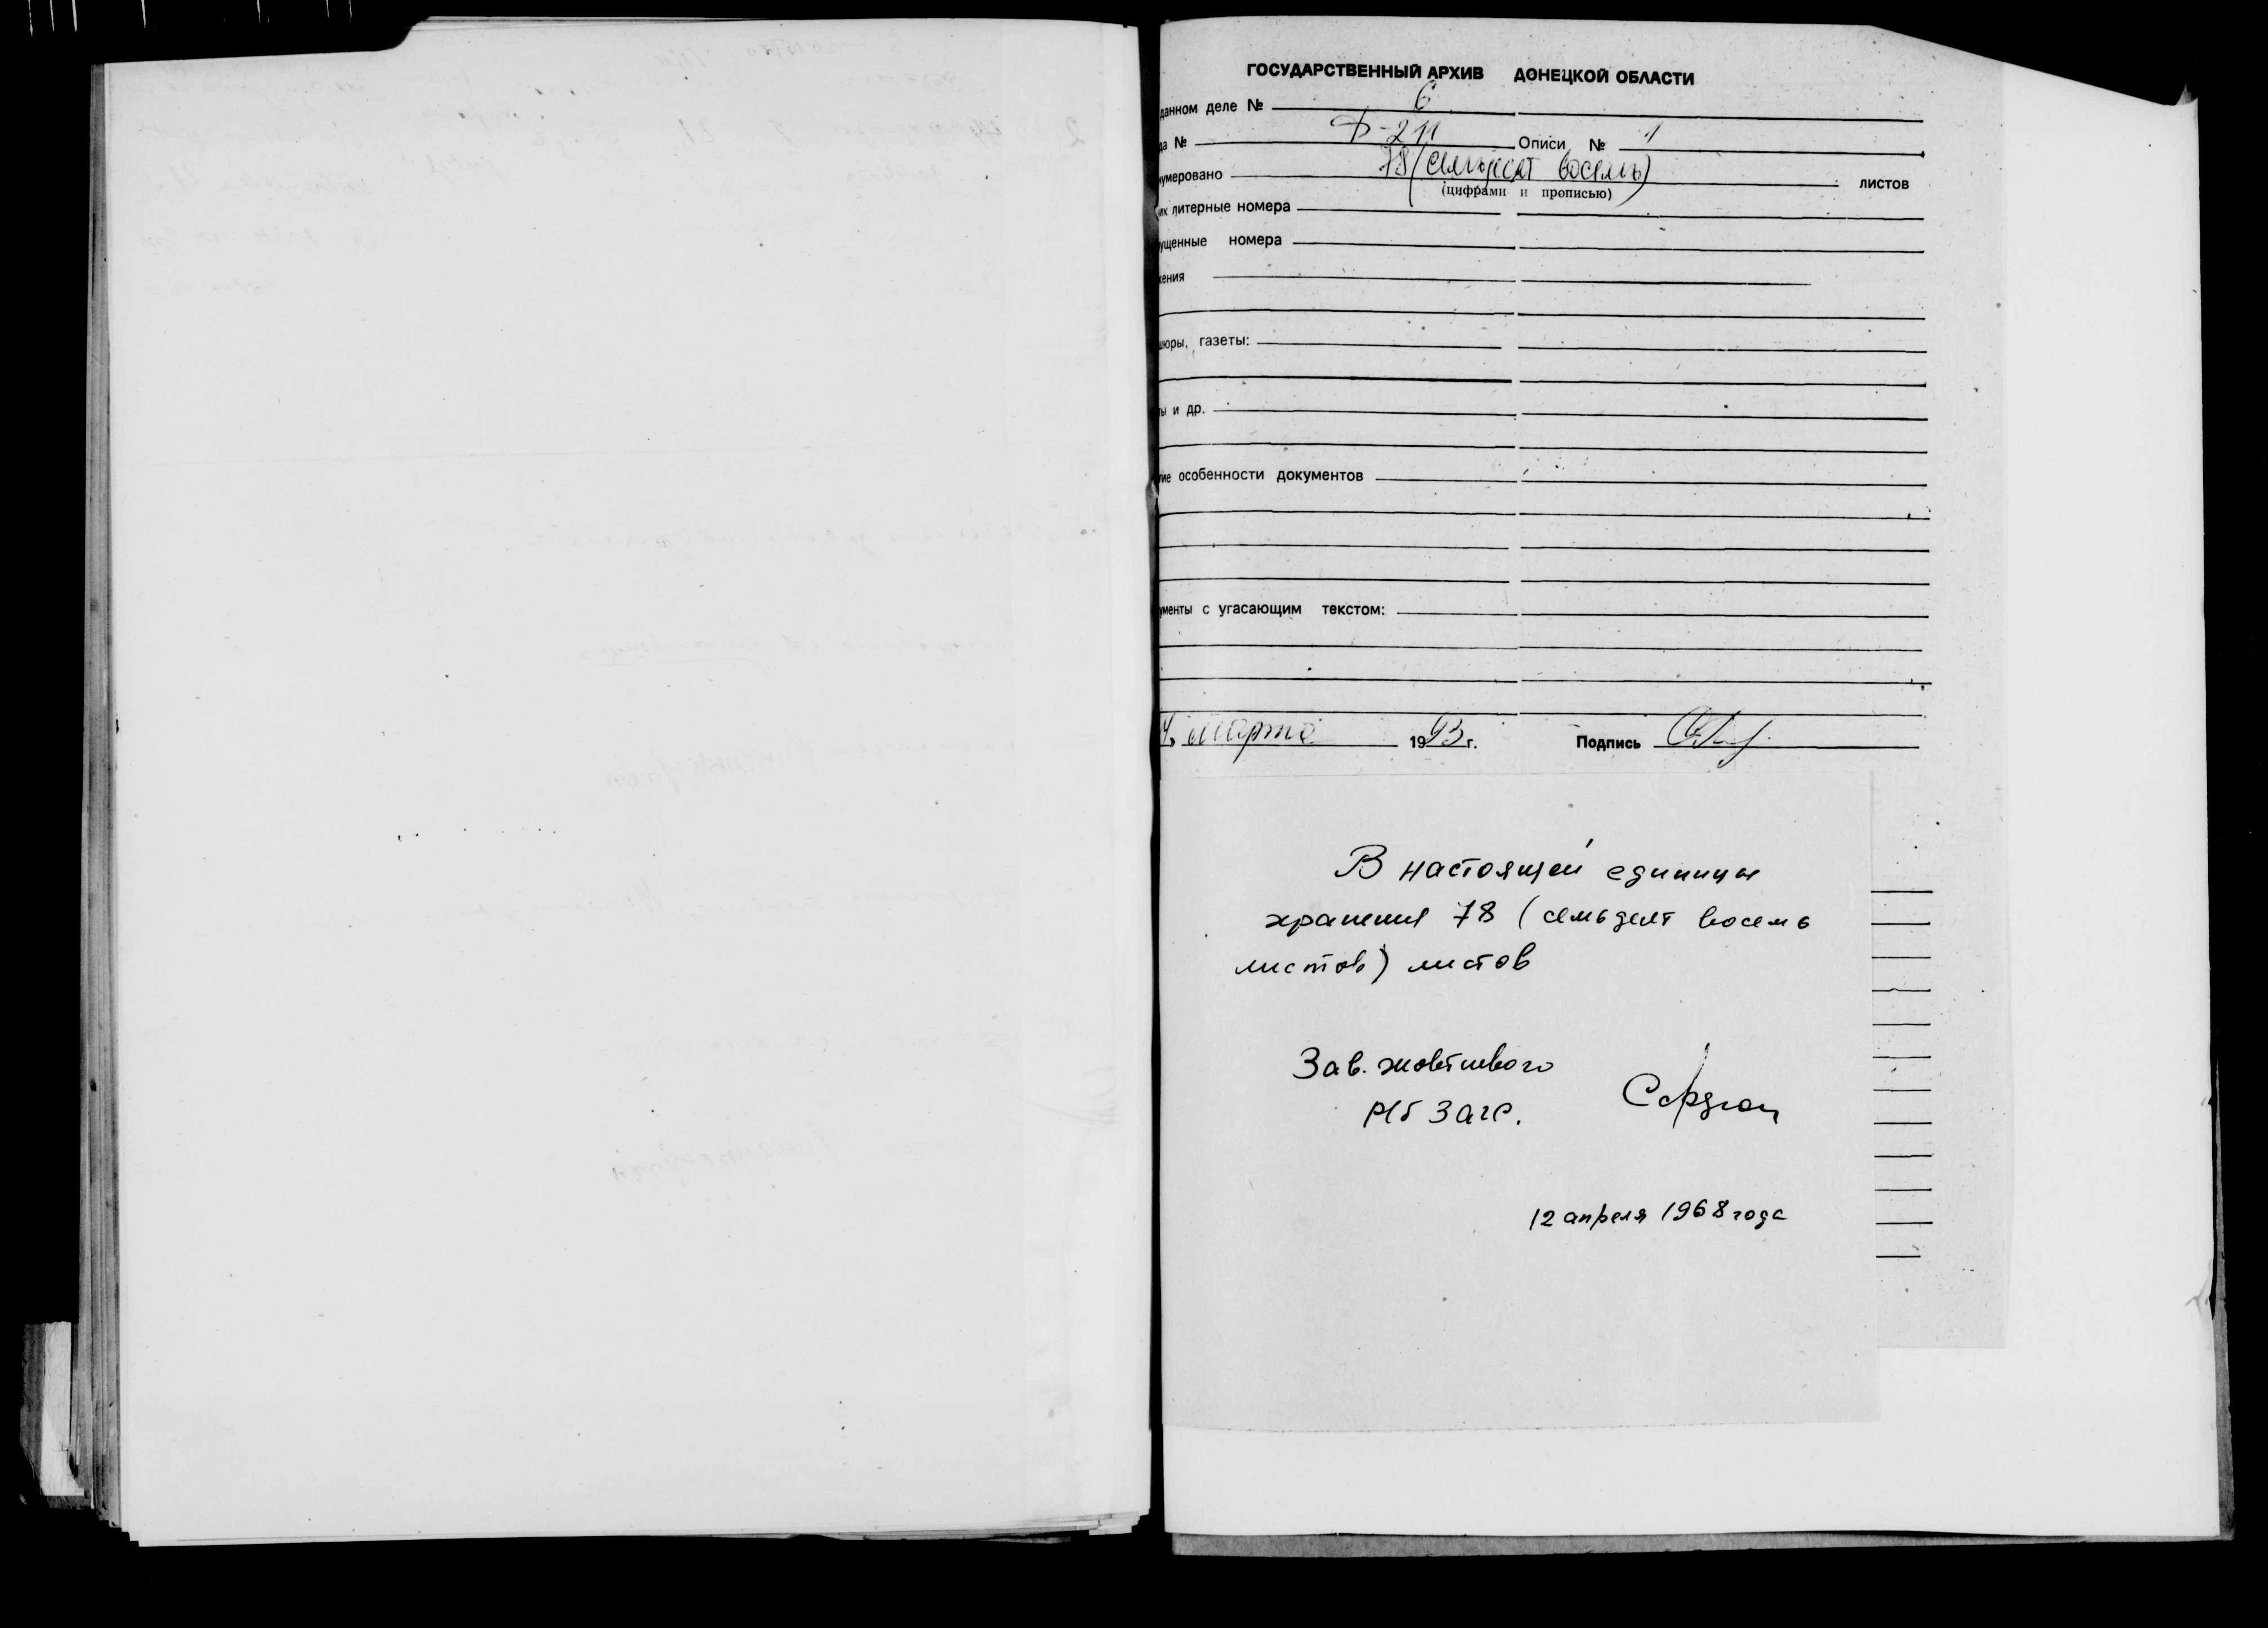 ГОСУДАРСТВЕННЫЙ АРХИВ ДОНЕЦКОЙ ОБЛАСТИ
данном деле № 6
да № Ф-211 Описи № 1
нумеровано 78 (семьдесят восемь) листов
(цифрами и прописью)
их литерные номера
ущенные номера
жения
шюры, газеты:
ты и др.
гие особенности документов
ументы с угасающим текстом:
4. марта 1993 г. Подпись
В настоящей единицы
хранения 78 (семьдест восемь
листов) листов
Зав. жовтневого
Рб Загс.
12 апреля 1968 года